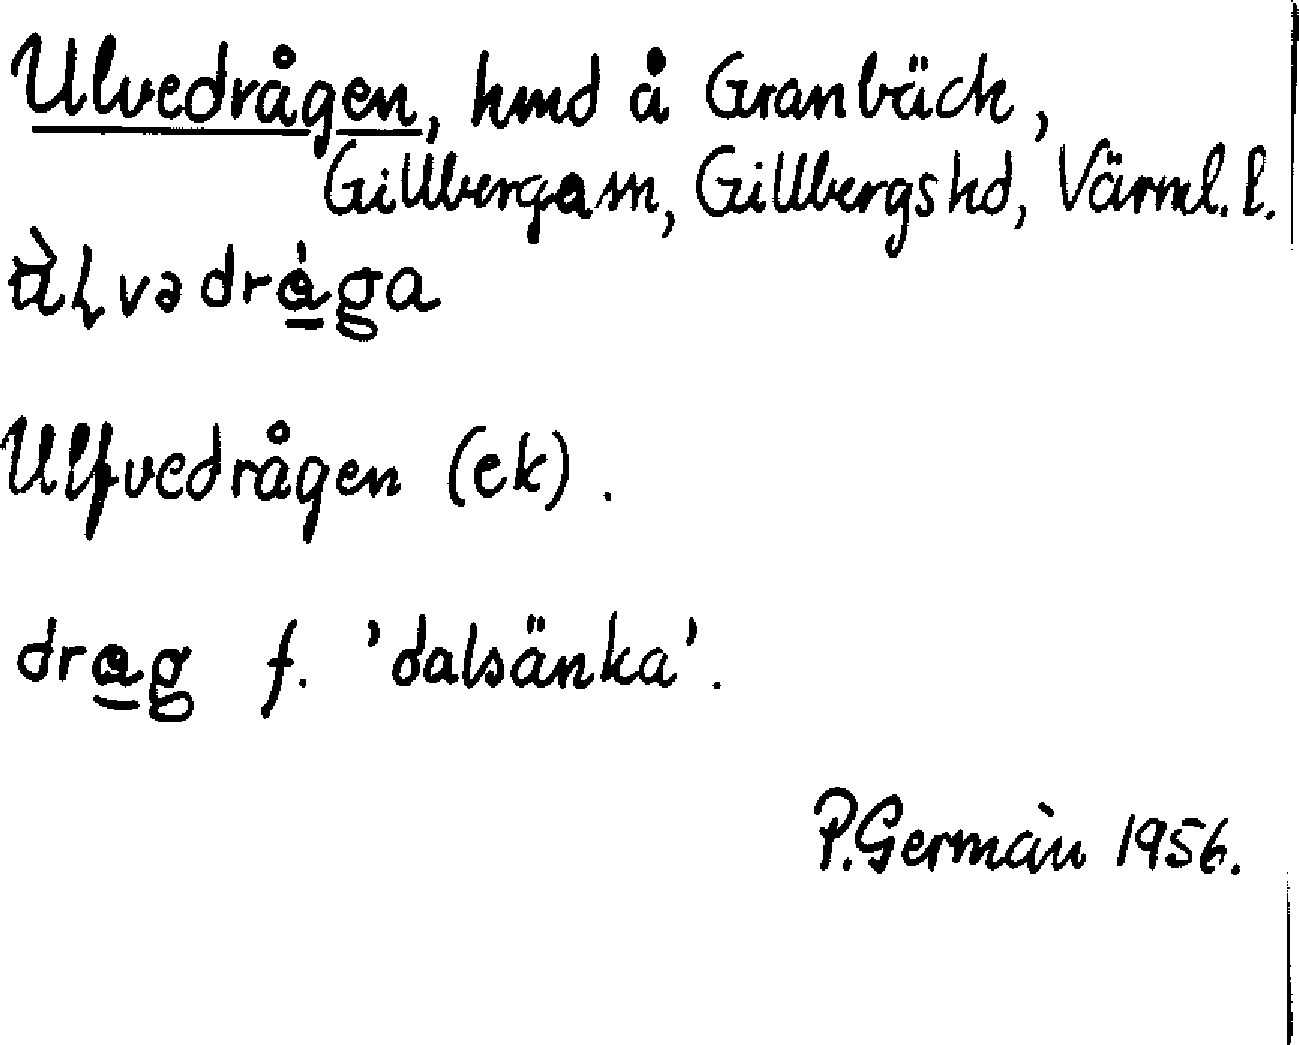 Ulvedrågen, hmd å Granbäck,
Gillberga sn, Gillbergs hd, Värml. l.
Ulfvedrågen (ek).
drag f. 'dalsänka'.
P. Germain 1956.